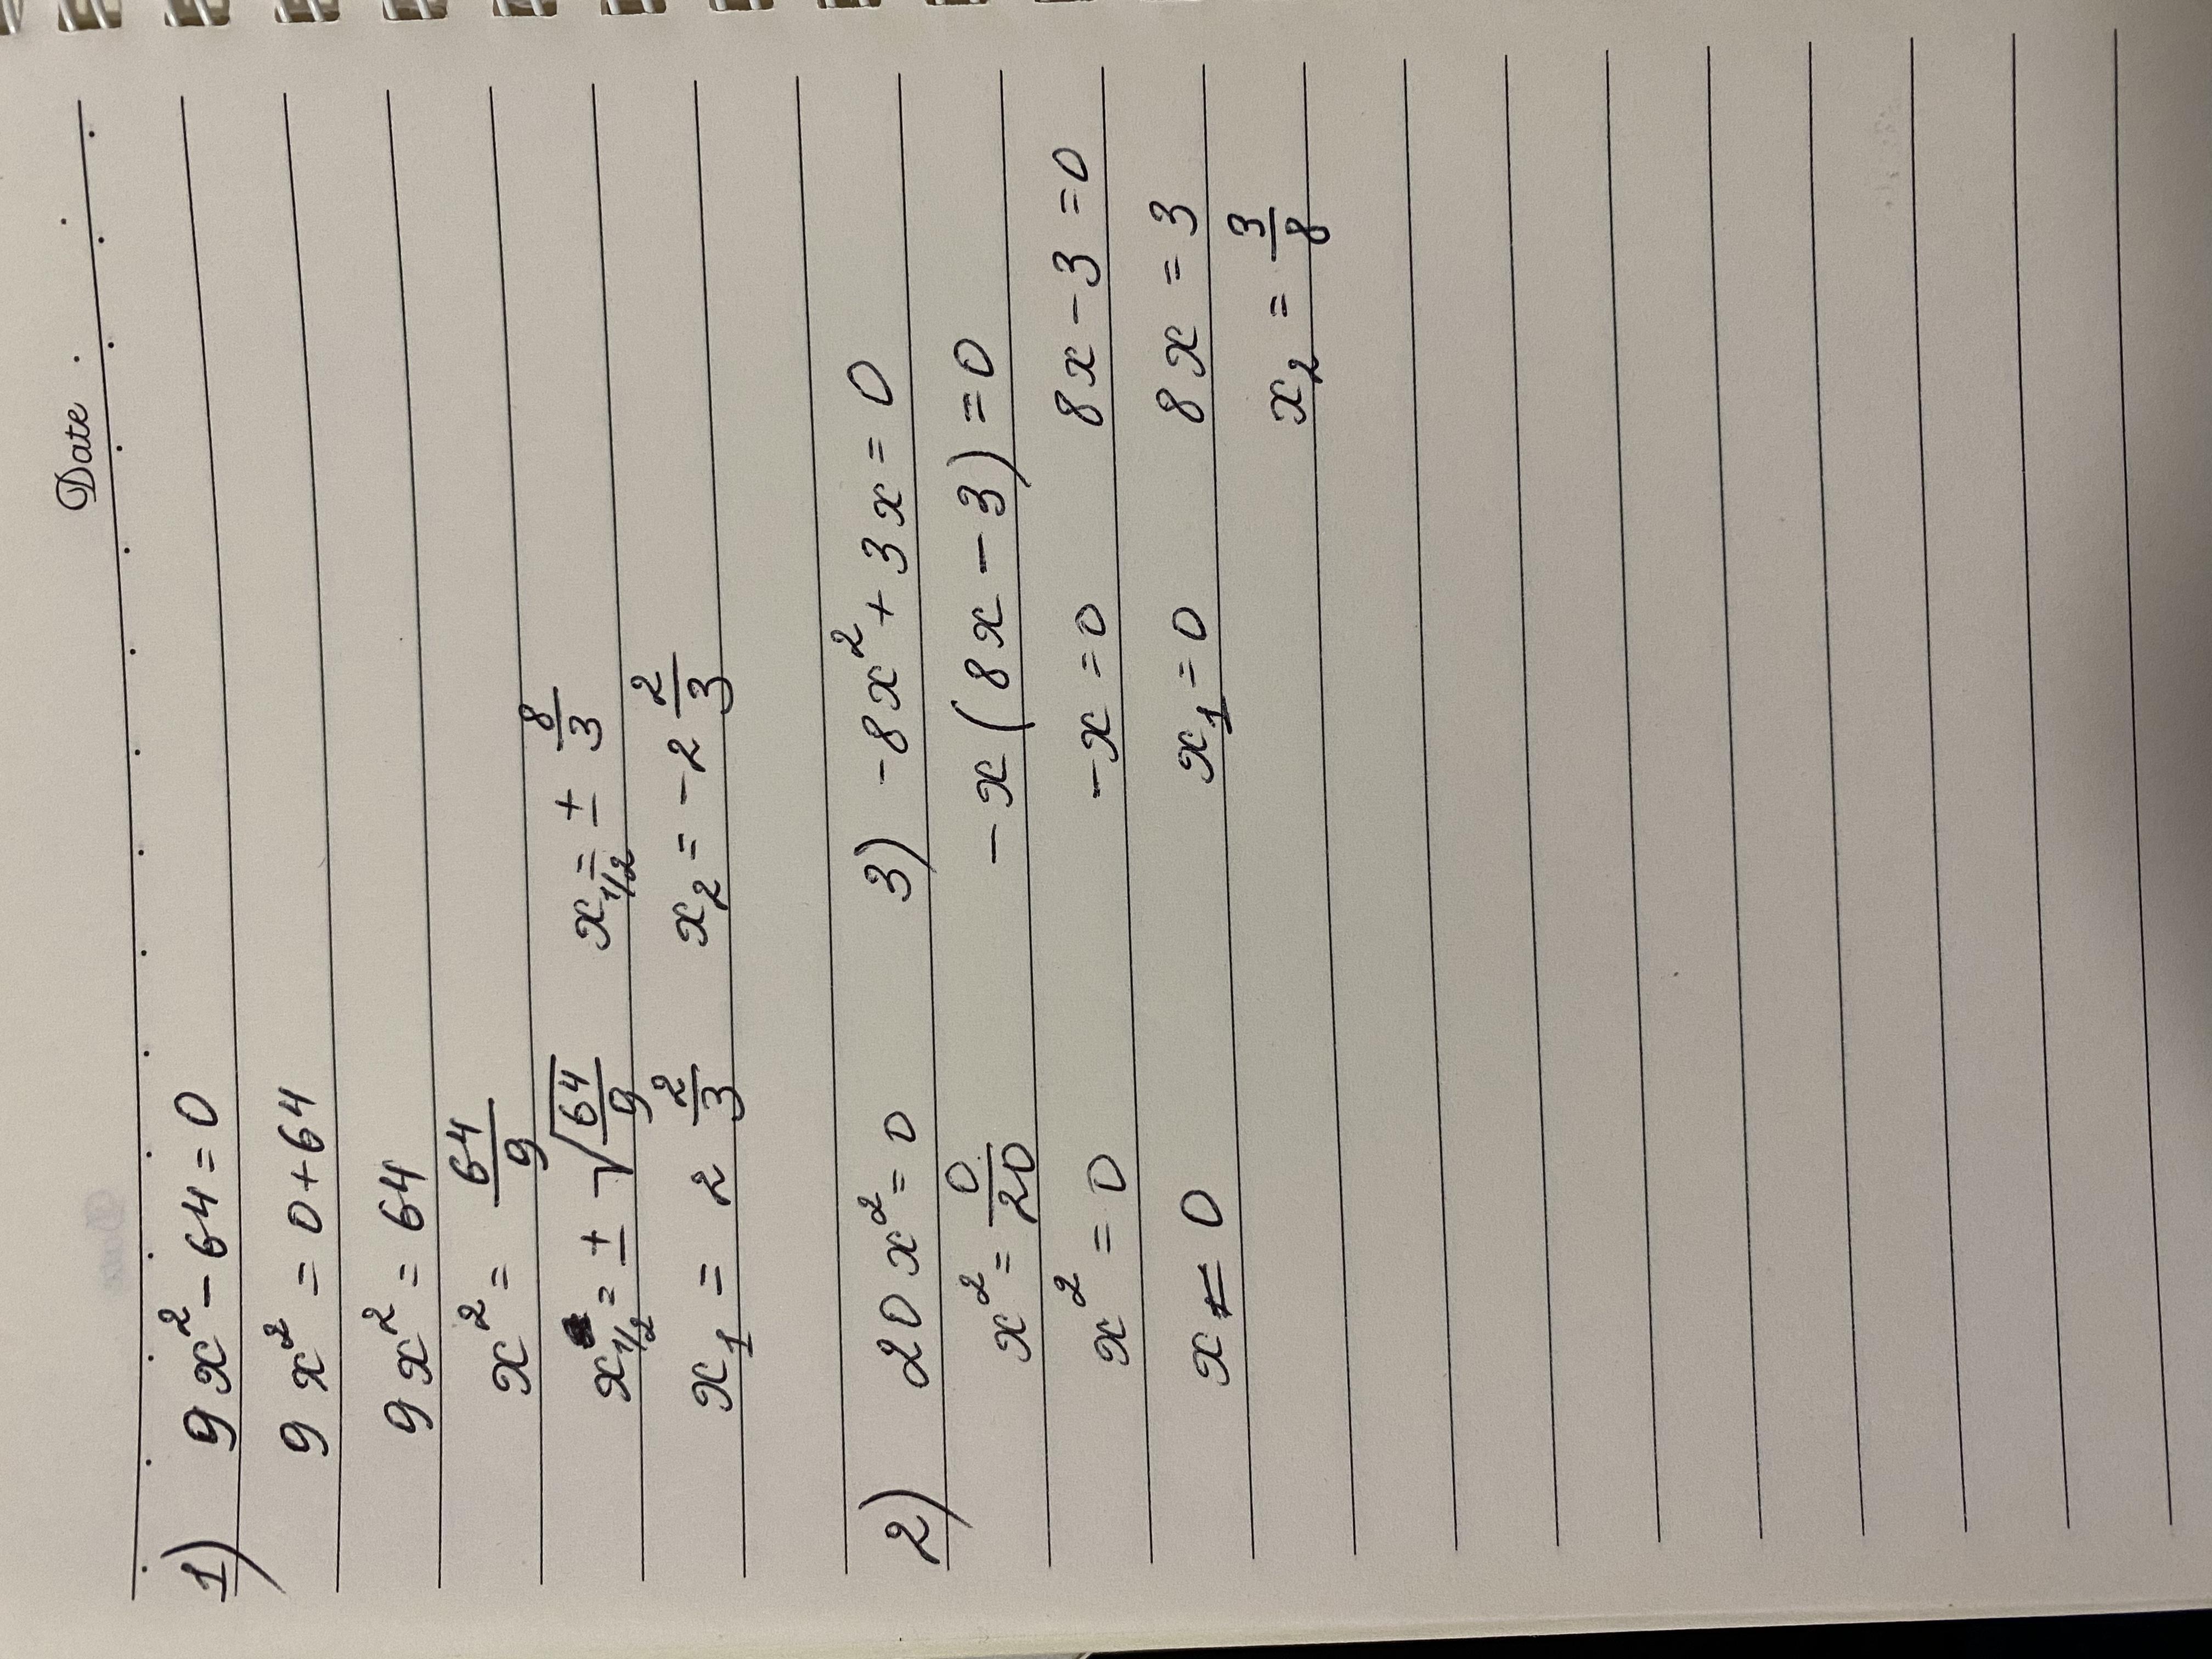 Date
1) 9x² - 64 = 0
9x² = 0 + 64
9x² = 64
x² = 64/9
x₁/₂ = ± √(64/9) x₁/₂ = ± 8/3
x₁ = 2 2/3 x₂ = -2 2/3
2) 20x² = 0 3) -8x² + 3x = 0
x² = 0/20 -x(8x - 3) = 0
x² = 0 -x = 0 8x - 3 = 0
x = 0 x₁ = 0 8x = 3
x₂ = 3/8